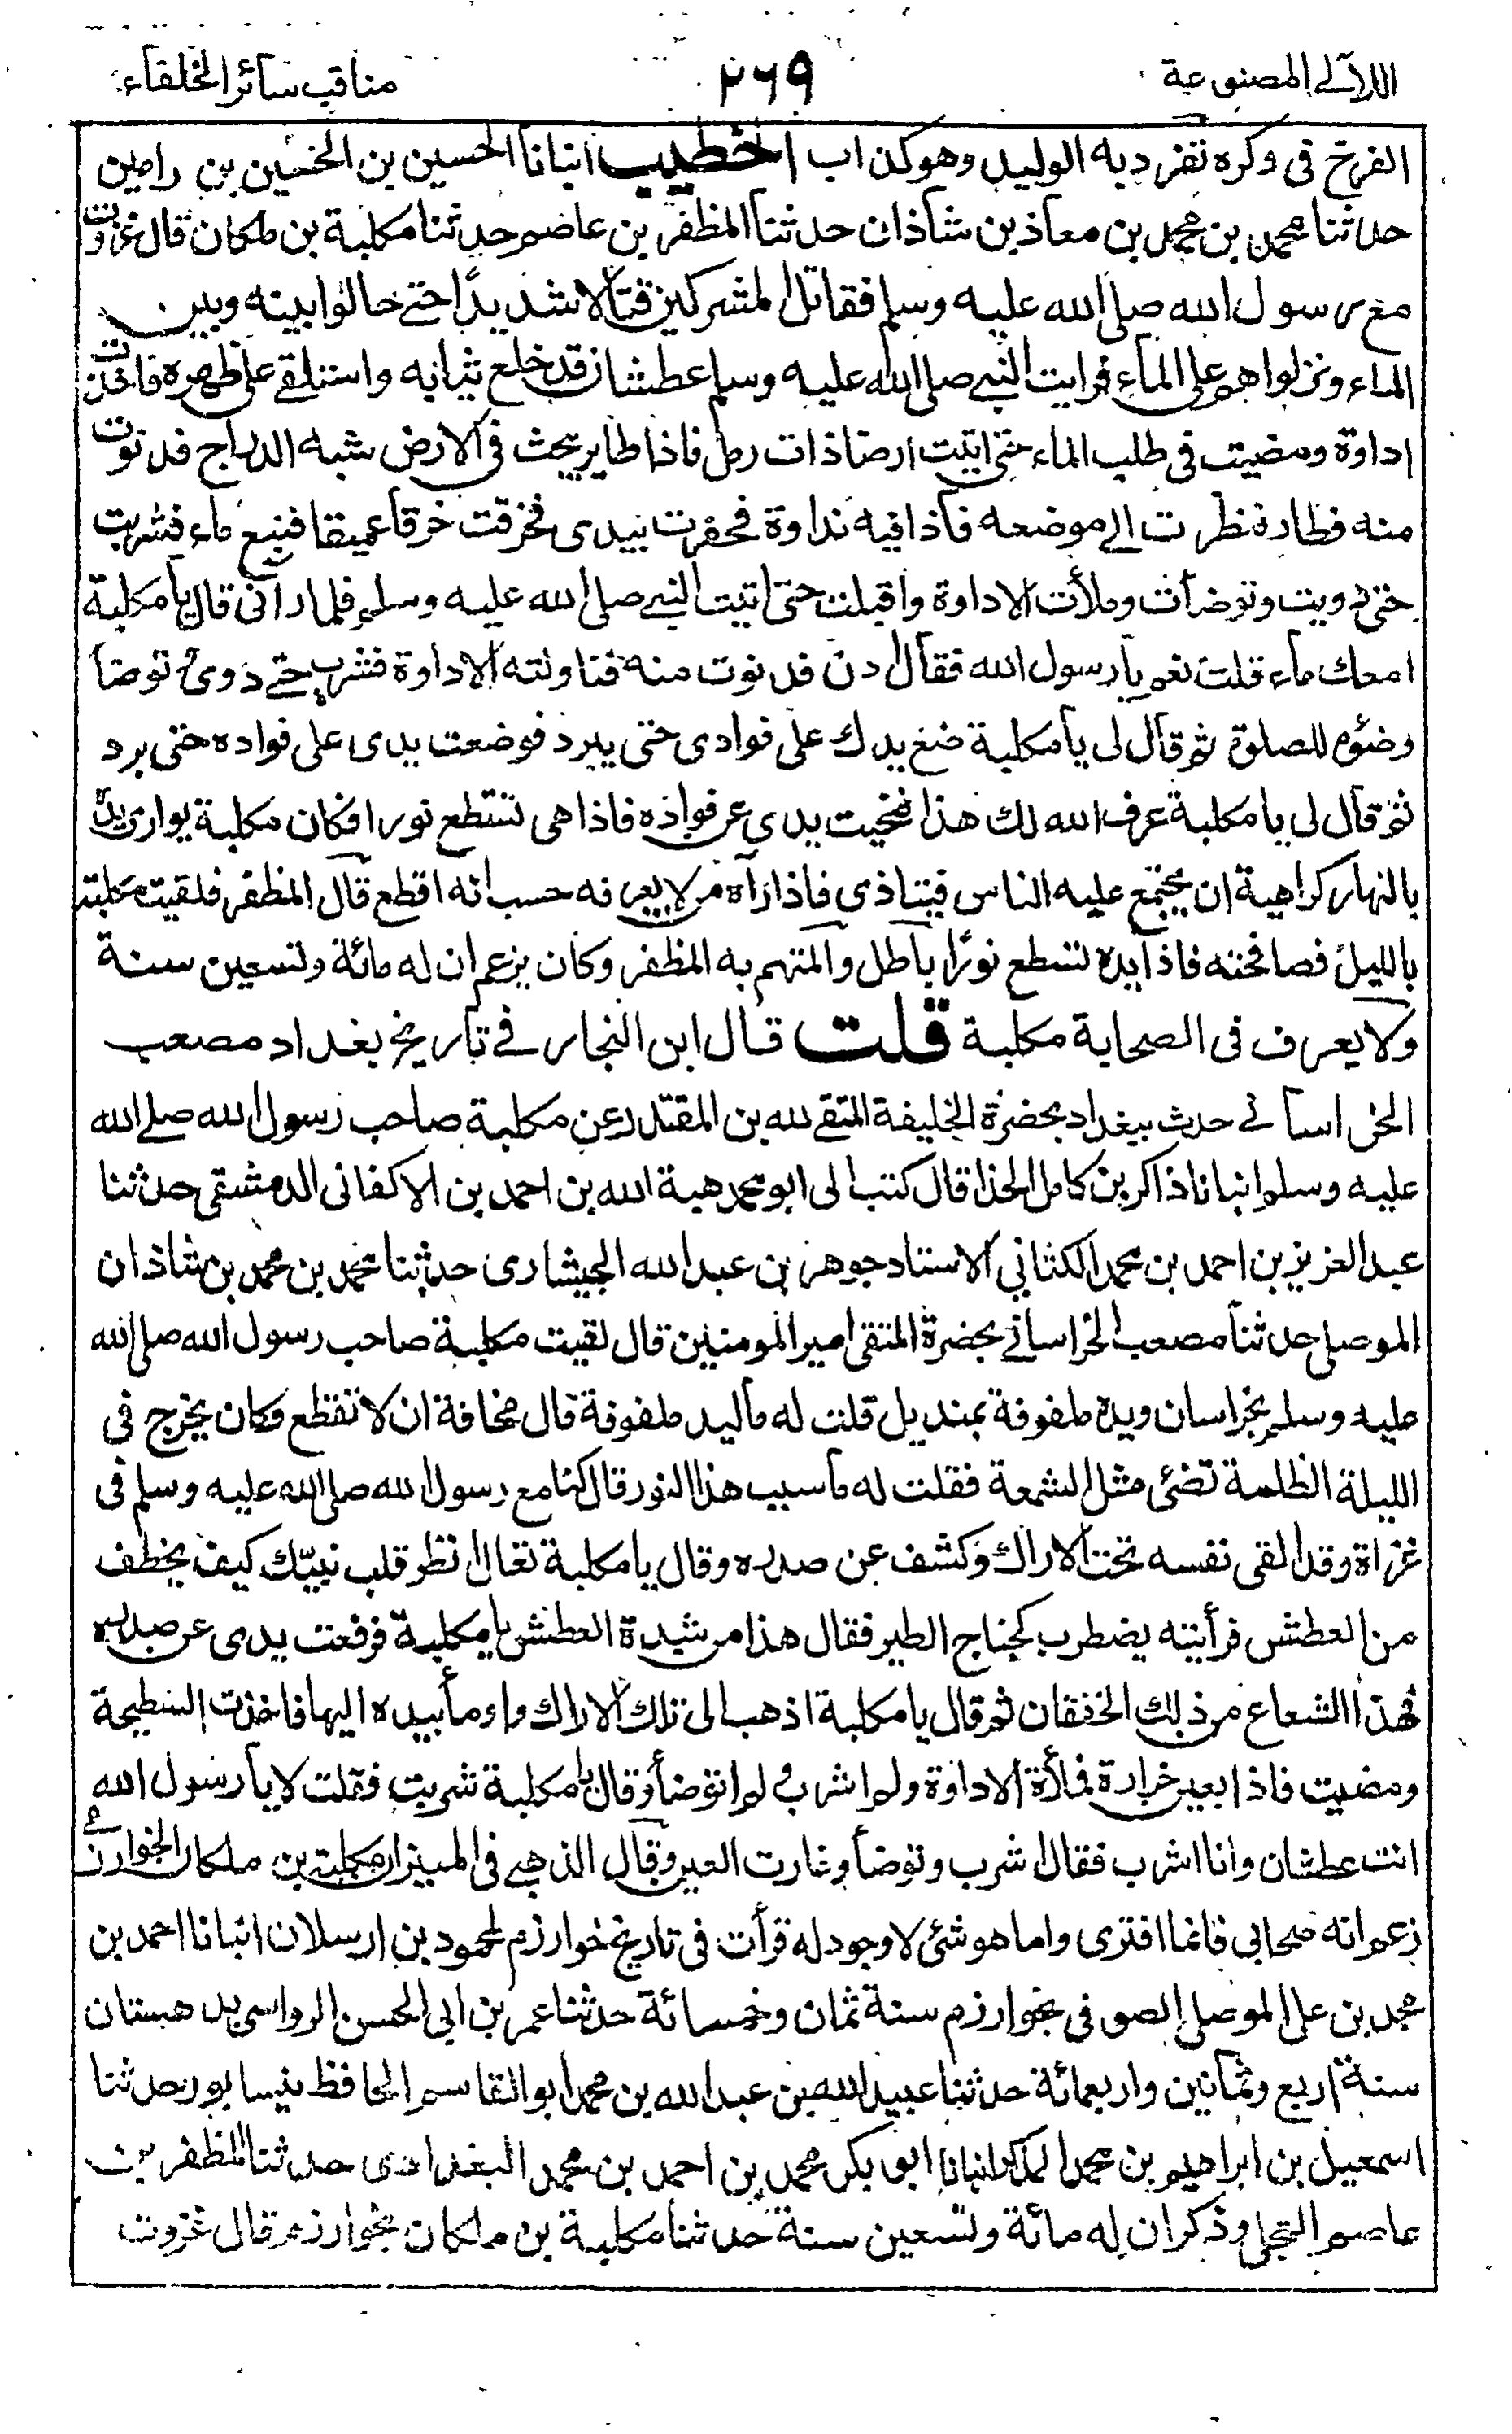 اللآلے المصنوعة ٢٦٩ مناقب سائر الخلفاء
الفرخ فى وكره تفرد به الوليد وهو كذاب الخطيب انبانا الحسين بن الحسين بن رامين
حدثنا محمد بن محمد بن معاذ بن شاذان حدثنا المظفر بن عاصم حدثنا مكلبة بن ملكان قال غزوت
مع رسول الله صلى الله عليه وسلم فقاتل المشركين قتالا شديدا حتے حالوا بينه وبين
الماء ونزلوا هم على الماء فرايت النبے صلى الله عليه وسلم عطشان قد خلع ثيابه واستلقے على ظهره فاخذت
اداوة ومضيت فى طلب الماء حتى اتيت ارضا ذات رمل فاذا طاير يبحث فى الارض شبه الدراج فدنوت
منه فطار فنظرت الے موضعه فاذا فيه نداوة فحفرت بيدى فخرقت خرقا عميقا فنبع ماء فشربت
حتى رويت وتوضأت وملأت الاداوة واقبلت حتى اتيت النبے صلى الله عليه وسلم فلما رآنى قال يا مكلبة
امعك ماء قلت نعم يا رسول الله فقال ادن فدنوت منه فناولته الاداوة فشرب حتے روى توضأ
وضوءه للصلوة ثم قال لى يا مكلبة ضع يدك على فوادى حتى يبرد فوضعت يدى على فواده حتى برد
ثم قال لى يا مكلبة عرف الله لك هذا فنحيت يدى عن فواده فاذا هى تسطع نورا فكان مكلبة يوارى يده
بالنهار كراهية ان يجتمع عليه الناس فيتاذى فاذا رآه من لا يعرفه حسب انه اقطع قال المظفر فلقيت مكلبة
بالليل فصافحته فاذا يده تسطع نورا باطل والمتهم به المظفر وكان يزعم ان له مائة وتسعين سنة
ولا يعرف فى الصحابة مكلبة قلت قال ابن النجار فے تاريخ بغداد مصعب
الخراسانے حدث ببغداد بحضرة الخليفة المتقے لله بن المقتدر عن مكلبة صاحب رسول الله صلے الله
عليه وسلم انبانا ذاكر بن كامل الحذا قال كتب الى ابو محمد هبة الله بن احمد بن الاكفانى الدمشقى حدثنا
عبد العزيز بن احمد بن محمد الكتانى الاستاد جوهر بن عبد الله الجيشارى حدثنا محمد بن محمد بن شاذان
الموصلى حدثنا مصعب الخراسانے بحضرة المتقى امير المومنين قال لقيت مكلبة صاحب رسول الله صلى الله
عليه وسلم بخراسان ويده ملفوفة بمنديل قلت له ما ليد ملفوفة قال مخافة ان لا تقطع وكان يخرج فى
الليلة الظلمة تضئ مثل الشمعة فقلت له ما سبب هذا النور قال كنا مع رسول الله صلى الله عليه وسلم فى
غزاة وقد القى نفسه تحت الاراك وكشف عن صدره وقال يا مكلبة تعال انظر قلب نبيّك كيف يخطف
من العطش فرأيته يضطرب كجناح الطير فقال هذا من شدة العطش يا مكلبة فرفعت يدى عن صدره
فهذا الشعاع من ذلك الخفقان ثم قال يا مكلبة اذهب الى تلك الاراك واومأ بيده اليها فاخذت السطيحة
ومضيت فاذا بعين خرارة فملأة الاداوة ولم اشرب ولم اتوضأ وقال يا مكلبة شربت فقلت لا يا رسول الله
انت عطشان وانا اشرب فقال اشرب وتوضأ وغارت العين وقال الذهبے فى الميزان مكلبة بن ملكان الخوارزمے
زعم انه صحابى فانما افترى واما هو شئ لا وجود له قرأت فى تاريخ خوارزم لمحمود بن ارسلان انبانا احمد بن
محمد بن على الموصلى الصوفى بخوارزم سنة ثمان وخمسمائة حدثنا عمر بن ابى الحسن الرواسى بدهستان
سنة اربع وثمانين واربعمائة حدثنا عبيد الله بن عبد الله بن محمد ابو القاسم الحافظ بنيسابور حدثنا
اسمعيل بن ابراهيم بن محمد المذكر انبانا ابو بكر محمد بن احمد بن محمد البغدادى حدثنا المظفر بن
عاصم العجلى وذكر ان له مائة وتسعين سنة حدثنا مكلبة بن ملكان بخوارزم قال غزوت